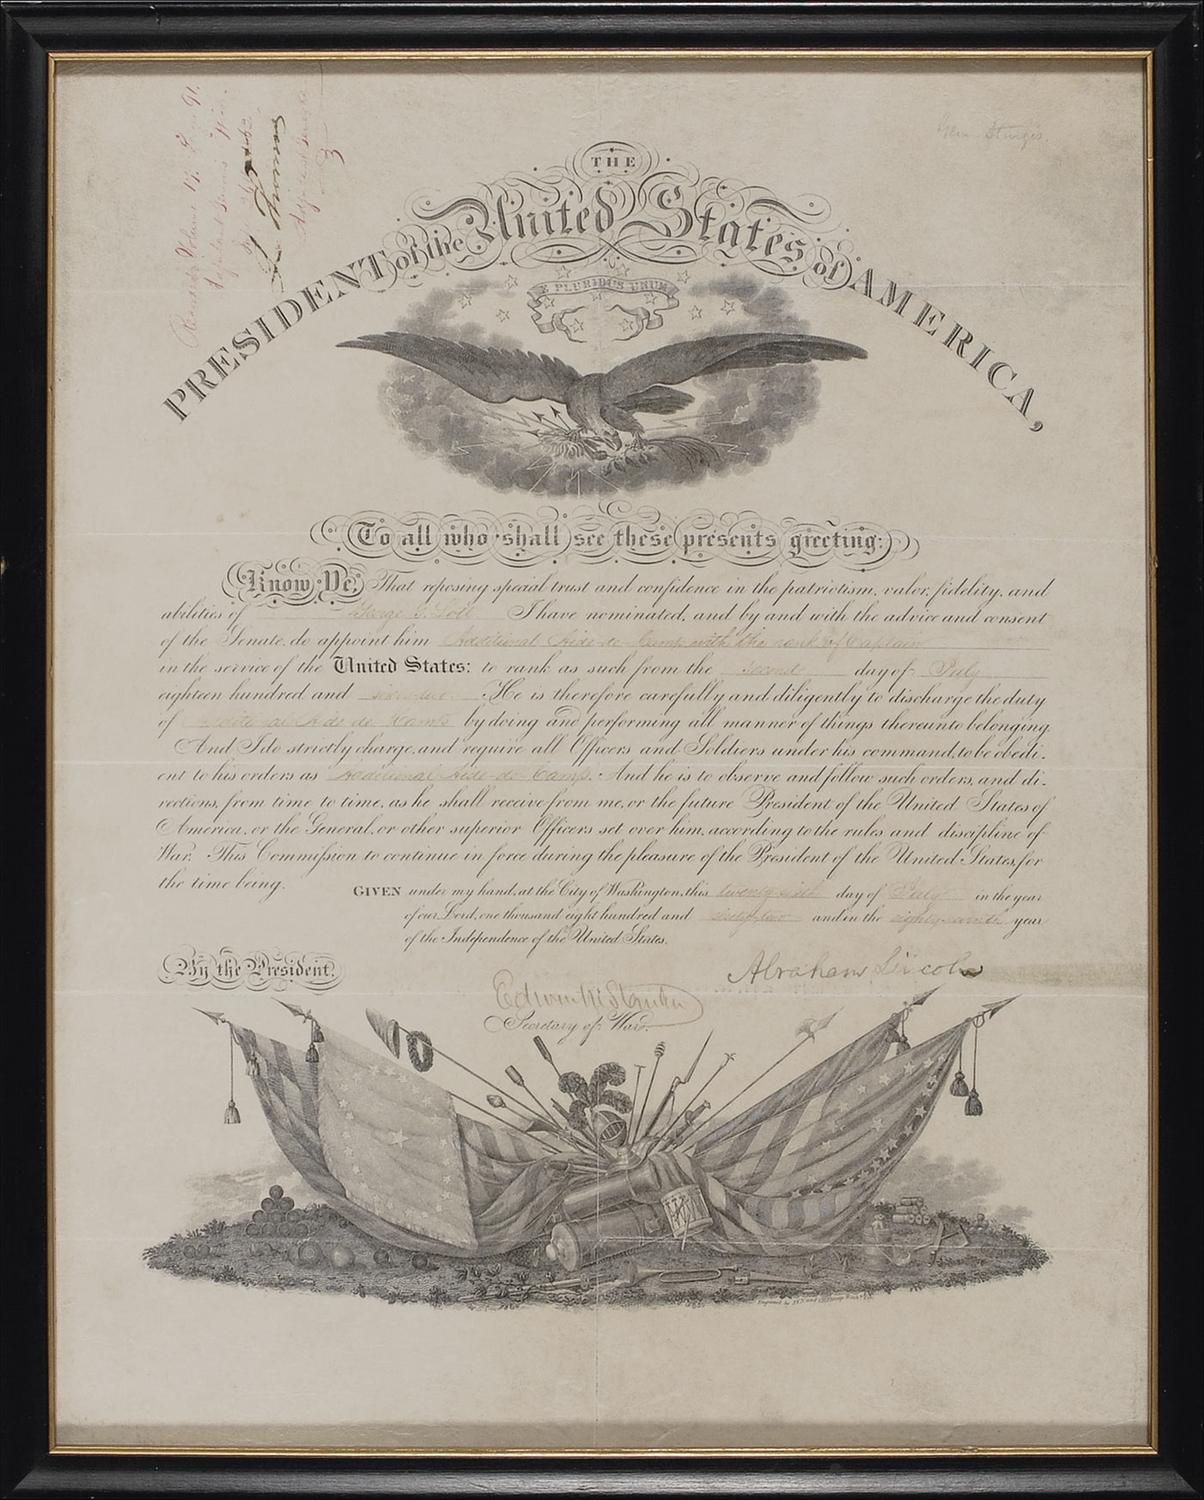 Gen. Sturgis
THE
PRESIDENT of the United States of AMERICA,
E PLURIBUS UNUM
To all who shall see these presents greeting:
Know Ye, That reposing special trust and confidence in the patriotism, valor, fidelity, and
abilities of George I have nominated, and by and with the advice and consent
of the Senate, do appoint him Additional Aide-de-Camp with the rank of Captain
in the service of the United States: to rank as such from the second day of July
eighteen hundred and sixty two. He is therefore carefully and diligently to discharge the duty
of Additional Aide de Camp by doing and performing all manner of things thereunto belonging.
And I do strictly charge, and require all Officers and Soldiers under his command, to be obedi-
ent to his orders as Additional Aide-de-Camp. And he is to observe and follow such orders, and di-
rections, from time to time, as he shall receive from me, or the future President of the United States of
America, or the General, or other superior Officers set over him, according to the rules and discipline of
War. This Commission to continue in force during the pleasure of the President of the United States, for
the time being.
GIVEN under my hand, at the City of Washington, this twenty sixth day of July in the year
of our Lord, one thousand eight hundred and sixty two and in the eighty-seventh year
of the Independence of the United States.
By the President.
Abraham Lincoln
Edwin M Stanton
Secretary of War.